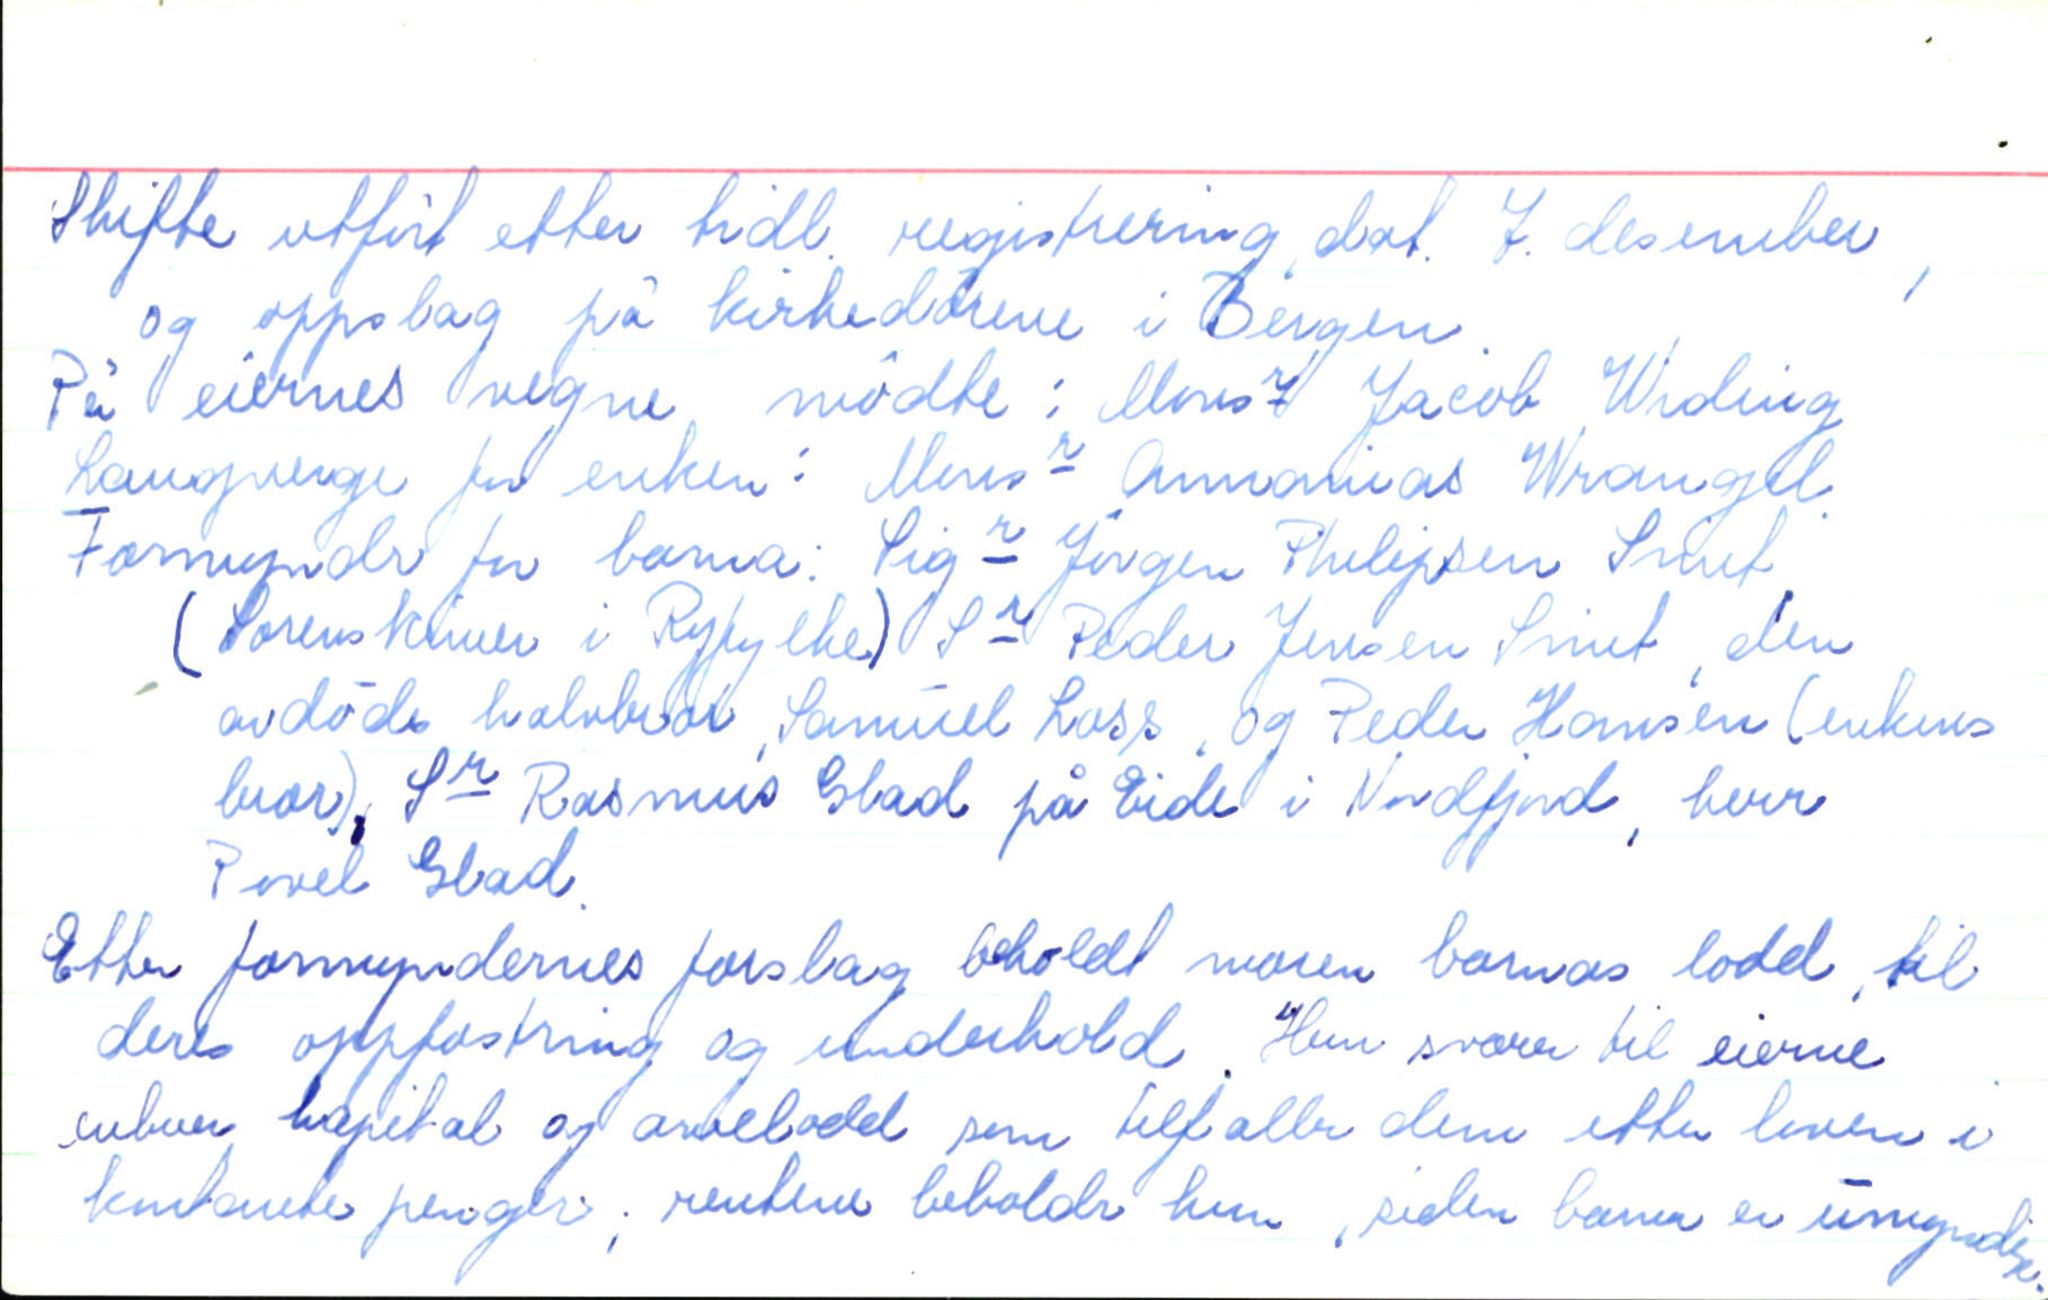 Skifte utført etter tidl. registrering, dat. 7. desember,
og oppslag på kirkedörene i Bergen.
På eiernes vegne mödte: Monsr Jacob Widing
Laugverge for enken: Monsr Annanias Wrangel.
Formyndr for barna: Sigr Jörgen Philipsen Smit
(Sorenskriver i Ryfylke) Sr Peder Jensen Smit, den
avdödes halvbror, Samuel Lass, og Peder Hansen (enkens
bror), Sr Rasmus Glad på Eide i Nordfjord, herr
Povel Glad.
Etter formyndernes forslag beholdt moren barnas lodd, til
deres oppfostring og underhold. Hun svarer til eierne
enhver kapital og arvelodd som tilfaller dem etter loven i
kontante penger; rentene beholdr hun, siden barna er umyndige.